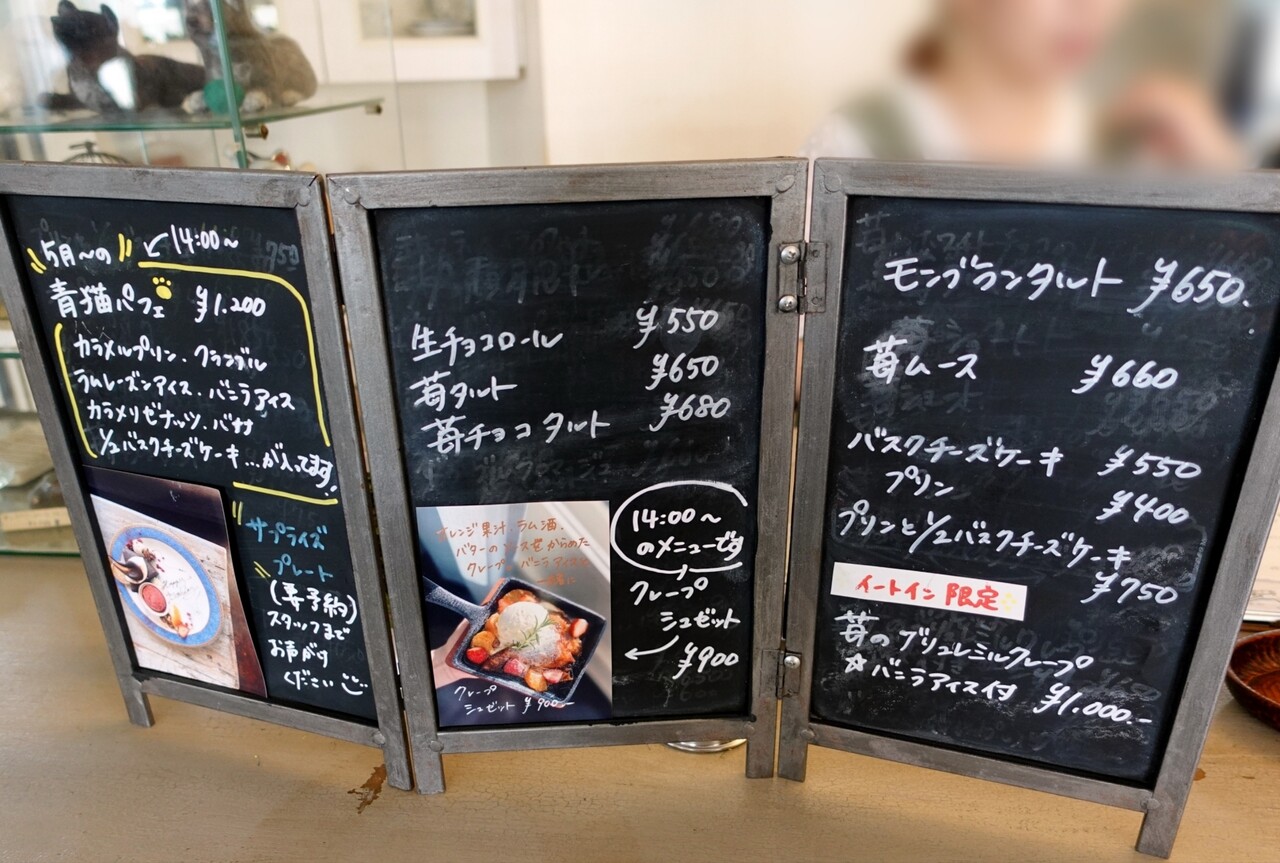 5月〜の
14:00〜
青猫パフェ ¥1.200
カラメルプリン、クランブル
ラムレーズンアイス、バニラアイス
カラメリゼナッツ、バナナ
1/2バスクチーズケーキ...が入ってます!
サプライズ
プレート
(要予約)
スタッフまで
お声がけ
ください
生チョコロール ¥550
苺タルト ¥650
苺チョコタルト ¥680
オレンジ果汁、ラム酒、
バターのソースをからめた
クレープ、バニラアイスと
14:00〜
のメニューです
クレープ
シュゼット
¥900
クレープ
シュゼット ¥900-
モンブランタルト ¥650.
苺ムース ¥660
バスクチーズケーキ ¥550
プリン ¥400
プリンと1/2バスクチーズケーキ
¥750
イートイン限定
苺のブリュレミルクレープ
☆バニラアイス付 ¥1.000.-